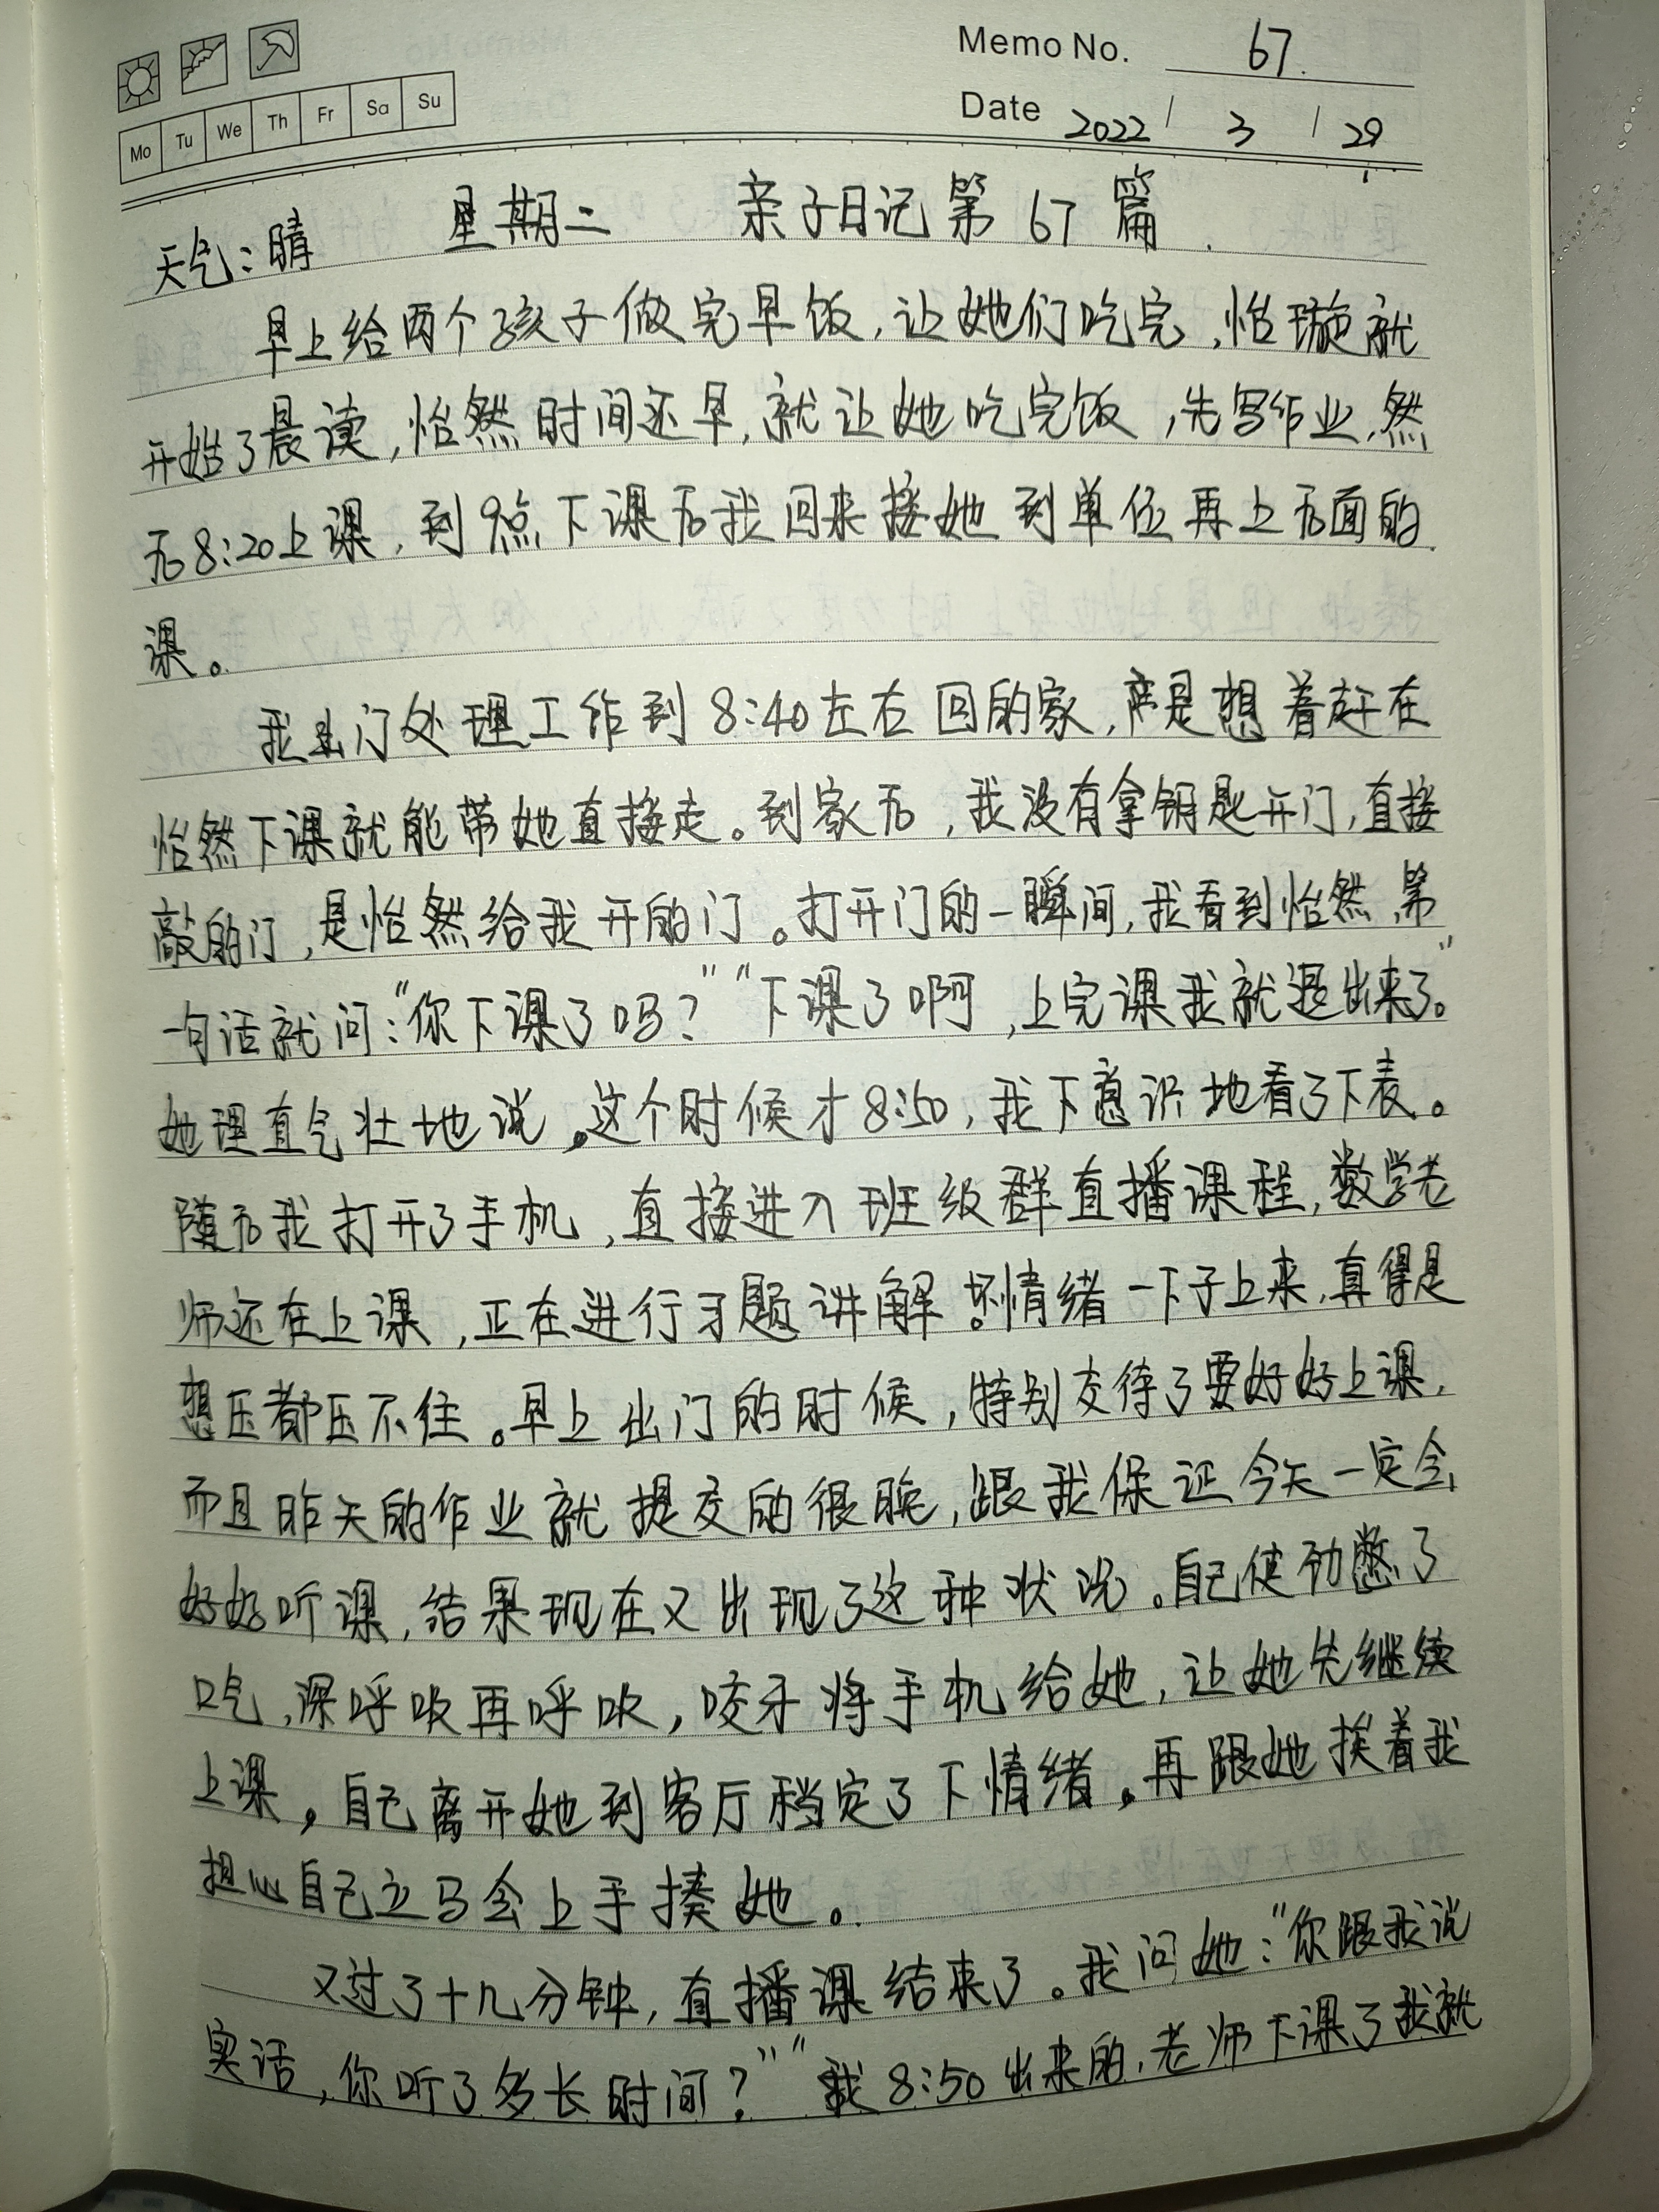 Memo No. 67.
Mo Tu We Th Fr Sa Su
Date 2022 / 3 / 29
天气：晴 星期二 亲子日记第67篇.
早上给两个孩子做完早饭,让她们吃完,怡璇就
开始了晨读,怡然时间还早,就让她吃完饭,先写作业,然
后8:20上课,到9点下课后我回来接她到单位再上后面的
课。
我出门处理工作到8:40左右回的家,产是想着赶在
怡然下课就能带她直接走。到家后,我没有拿钥匙开门,直接
敲的门,是怡然给我开的门。打开门的一瞬间,我看到怡然,第
一句话就问:“你下课了吗?”“下课了啊,上完课我就退出来了。”
她理直气壮地说。这个时候才8:50,我下意识地看了下表。
随后我打开了手机,直接进入班级群直播课程,数学老
师还在上课,正在进行习题讲解。坏情绪一下子上来,真得是
想压都压不住。早上出门的时候,特别交待了要好好上课,
而且昨天的作业就提交的很晚,跟我保证今天一定会
好好听课,结果现在又出现了这种状况。自己使劲憋了
口气,深呼吸再呼吸,咬牙将手机给她,让她先继续
上课。自己离开她到客厅稳定了下情绪。再跟她挨着我
担心自己立马会上手揍她。
又过了十几分钟,直播课结束了。我问她:“你跟我说
实话,你听了多长时间?”“我8:50出来的,老师下课了我就